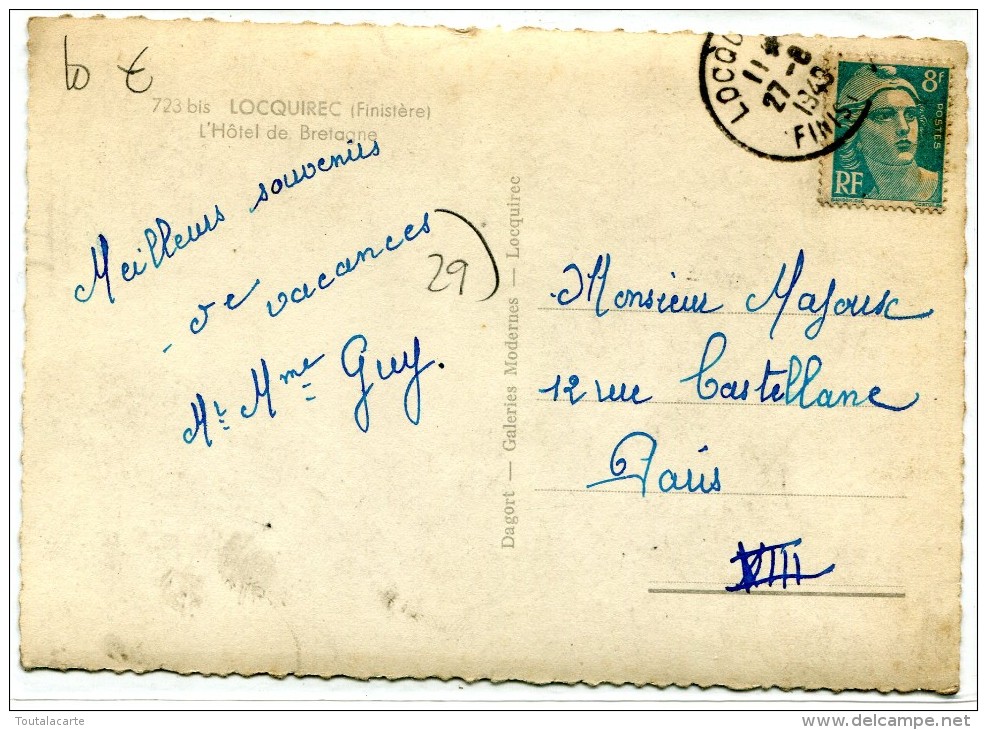 10 €
723 bis LOCQUIREC (Finistère)
L'Hôtel de Bretagne
Meilleurs souvenirs
de vacances
Mr Mme Guy.
29
Dagort — Galeries Modernes — Locquirec
11 *
27 - 8
FINIS
8f
POSTES
RF
Monsieur
12 rue Castellane
Paris
VIII
Toutalacarte
www.delcampe.net